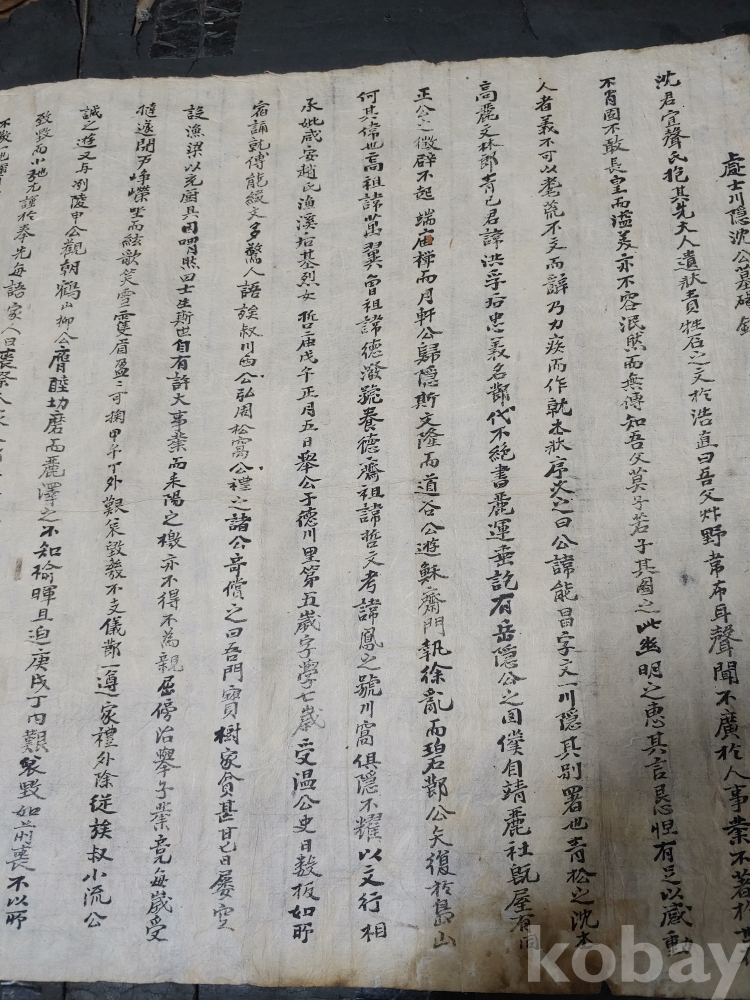 處士川隱沈公墓碣銘
沈君宜聲氏抱其先大人遺狀責牲石之文於浩直曰吾父炸野韋布耳聲聞不廣於人事業不著於世
不肖固不敢長皇而溢美亦不容泯然而無傳知吾父莫子若子其圖之此幽明之惠其言悬怛有足以感動
人者義不可以耄荒不文而辭乃力疾而作就本狀序次之曰公諱能昌字文一川隱其別署也青松之沈本
高麗文林郞青已君諱洪孚后忠義名鄭代不絕書麗運垂訖有岳隱公之罔僕自靖麗社旣屋有同
正公之徵辟不起端庙禅而月軒公歸隱斯文隆而道谷公遊穌齋門執徐亂而碧鄭公矢復於島山
何其偉也高祖諱萬翼曾祖諱德潑號養德齋祖諱哲文考諱鳳之號川窩俱隱不耀以文行相
承妣咸安趙氏漁溪后基烈女哲庙戊午正月五日擧公于德川里第五歲字學七歲受温公史日数板如所
宿誦乾傳能綴文多驚人語族叔川西公弘周松窩公禮之諸公奇償之曰吾門寶樹家貧甚甘旨屡空
設漁梁以充厨具因喟然曰士生斯世自有許大事業而耒陽之檄亦不得不為親屈傍治擧子業竞每歲受
檛遂閉戸崢嶸坐而絃歌笑雪䨥眉盈盈可掬甲午丁外艱哀毀發不文儀鄭一遵家禮外除從族叔小流公
誠之遊又与刿陵申公觀朝鶴山柳公膺睦切磨而麗澤之不知榆暉且迫庚戌丁內艱哀毀如前喪不以所
致毀而小弛尤謹於奉先每語家人曰喪祭